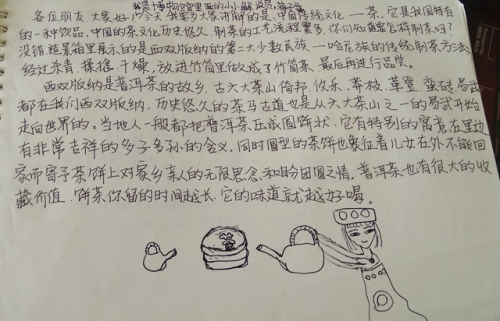 我是博物馆里面的小小解说员
各位朋友大家好!今天我要为大家讲解的是,中国传统文化——茶,它是我国特有
的一种饮品,中国的茶文化历史悠久,制茶的工艺流程繁多,你们知道要怎样制茶吗?
没错这景箱里展示的是西双版纳的第二大少数民族——哈尼族的传统制茶方法,
经过杀青,揉捻,干燥,放进竹筒里做成了竹筒茶,最后再进行品尝。
西双版纳是普洱茶的故乡,古六大茶山倚邦,攸乐,莽枝,革登,蛮砖,易武
都在我们西双版纳,历史悠久的茶马古道也是从六大茶山之一的易武开始
走向世界的。当地人一般都把普洱茶压成圆饼状,它有特别的寓意在里边
有非常吉祥的多子多孙的含义,同时圆型的茶饼也象征着儿女在外不能回
家而寄予茶饼上对家乡亲人的无限思念和盼团圆之情,普洱茶也有很大的收
藏价值,饼茶你留的时间越长,它的味道就越好喝。